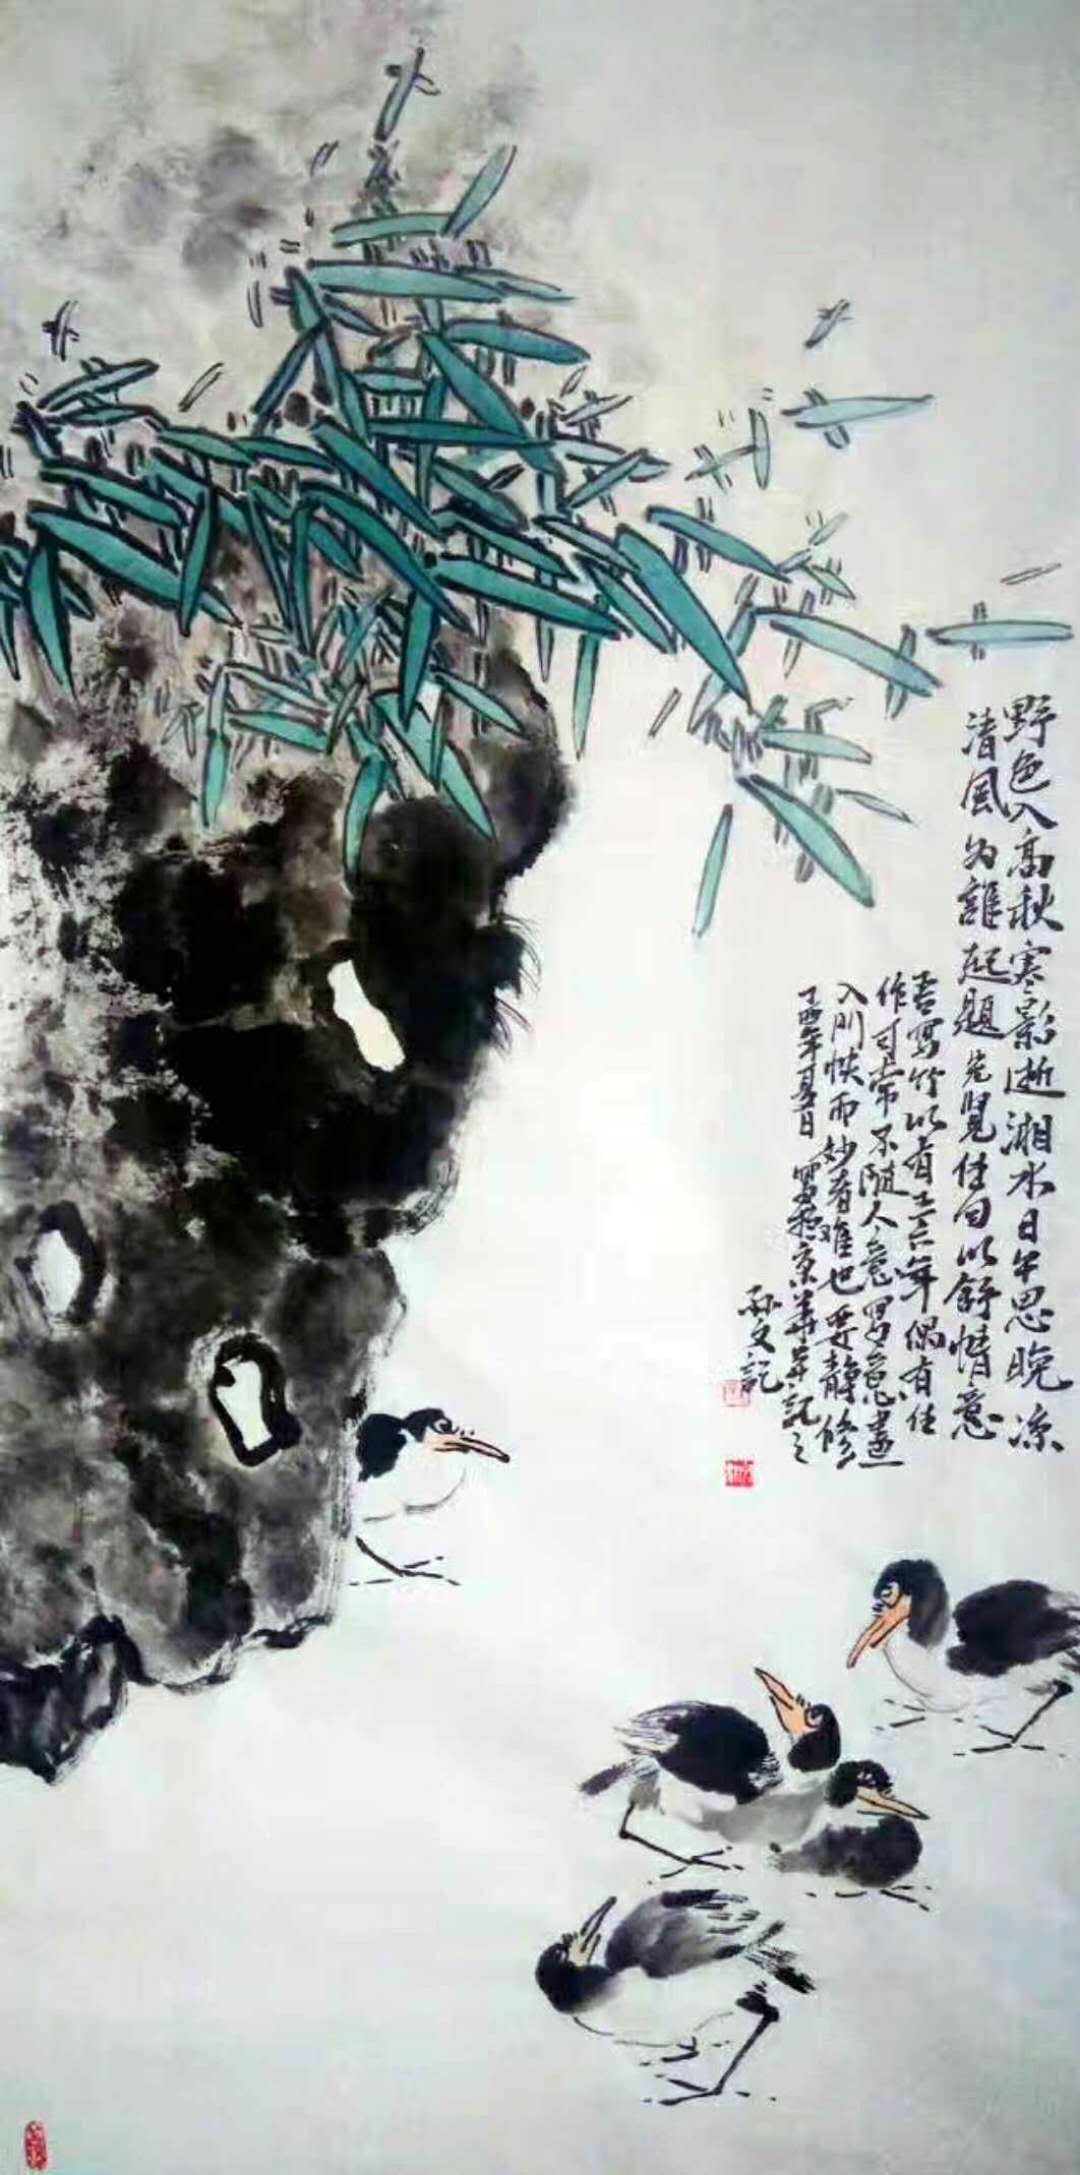 野色入高秋寒影逝湘水日午思晚凉
清风为谁起题先贤佳句以舒情意
吾写竹以有三六年偶有佳
作可常不随人意写意画
入门快而妙者难也要静修
丁酉年夏日写于京华并记之
孙文记